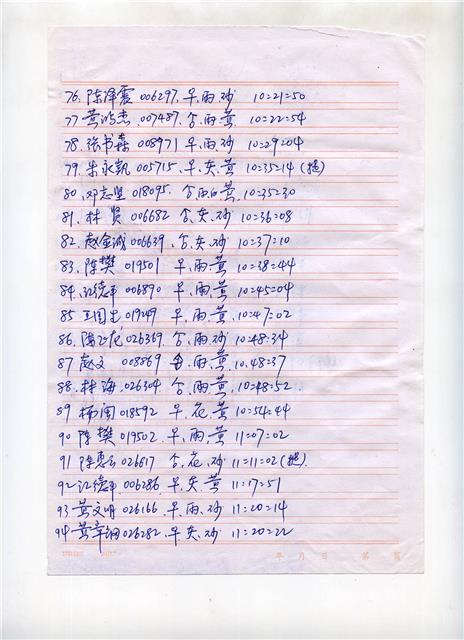 76. 陈泽震 006297. 早. 雨. 砂 10=21=50
77 黄鸿杰. 007487. 合. 雨. 黄 10=22=54
78. 张书森 008971 早. 雨. 砂 10=29=04
79. 朱永凯 005715. 早. 灰. 黄 10=35=14 (挂)
80. 邓志坚 018095. 合. 雨白黄. 10=35=30
81. 林贤 006682 合. 灰. 砂 10=36=08
82. 赵金诚 006639. 合. 灰. 砂 10=37=10
83. 陈樊 019501 早. 雨. 黄 10=38=44
84. 江德平 006890 早. 雨. 黄 10=45=04
85 王国忠 019249 早. 雨. 黄 10=47=02
86. 陈 026369 合. 雨. 砂 10=48=34
87 赵文 008869 雨. 黄 10.48=37
88. 林海. 026304 合. 雨. 黄 10=48=52
89 杨闽 018592 早. 花. 黄 10=54=44
90 陈樊 019502 早. 雨. 黄 11=07=02
91 陈 026817 合. 花. 砂 11=11=02 (挂)
92 江德平 006286. 早. 灰. 黄 11=17=51
93 黄文明 026166 早. 雨. 砂 11=20=14
94 黄章钢 026282. 早. 灰. 砂 11=20=22
年 月 日 第 页